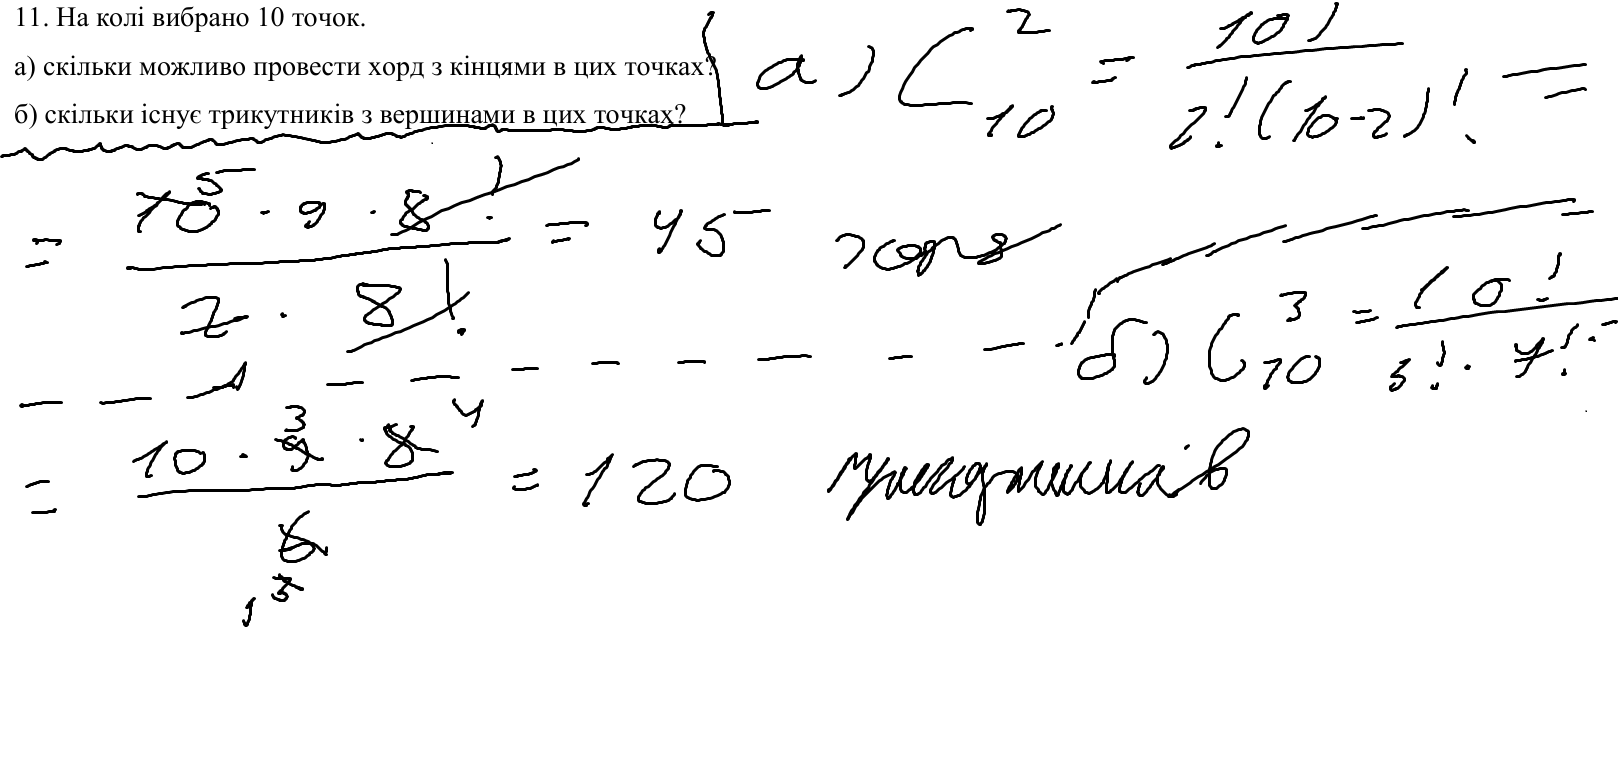 11. На колі вибрано 10 точок.
а) скільки можливо провести хорд з кінцями в цих точках?
б) скільки існує трикутників з вершинами в цих точках?
а) C₁₀² = 10! / 2!(10-2)! =
= 10 5 · 9 · 8! / 2 · 8! = 45 хорд
б) C₁₀³ = 10! / 3! · 7! =
= 10 · 9 3 · 8 4 / 6 3 1 = 120 трикутників